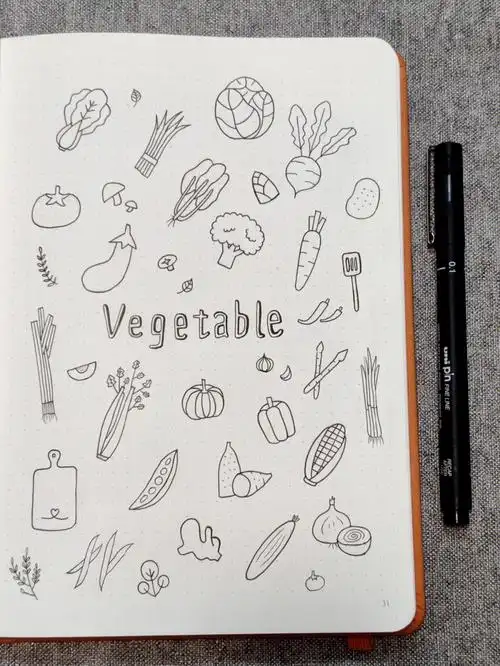 Vegetable
0.1
uni pin FINE LINE
31